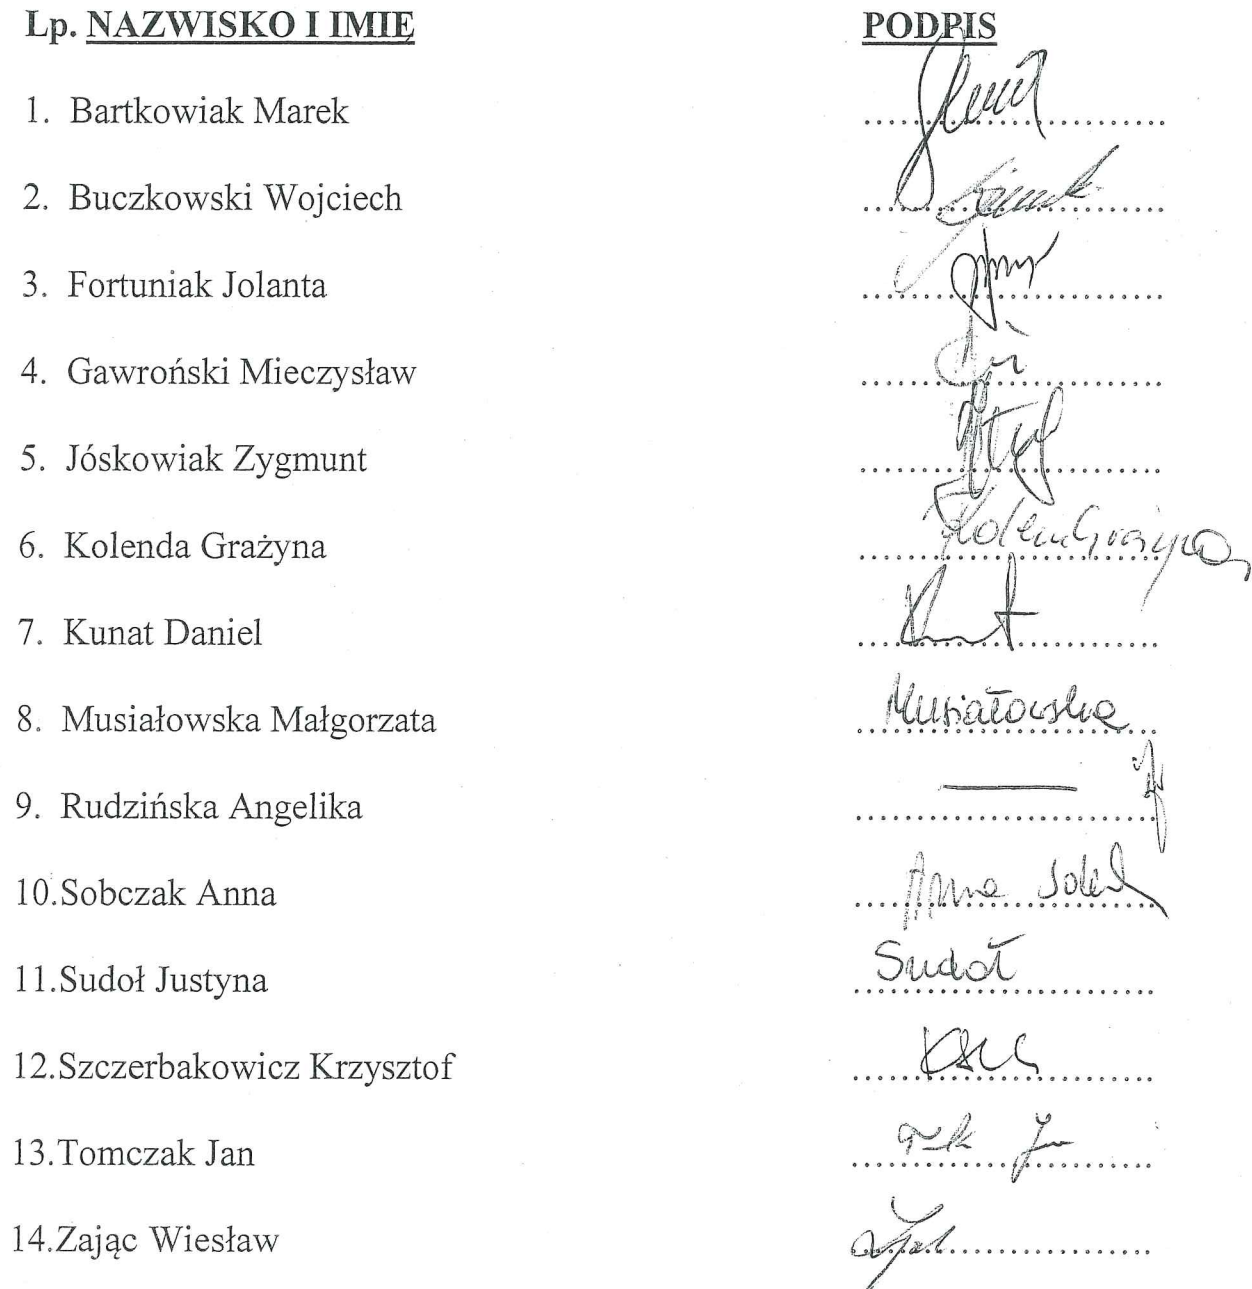 Lp. NAZWISKO I IMIĘ PODPIS
1. Bartkowiak Marek ..............................
2. Buczkowski Wojciech ..............................
3. Fortuniak Jolanta ..............................
4. Gawroński Mieczysław ..............................
5. Jóskowiak Zygmunt ..............................
6. Kolenda Grażyna ..............................
7. Kunat Daniel ..............................
8. Musiałowska Małgorzata Musiałowska
9. Rudzińska Angelika ..............................
10.Sobczak Anna Anna
11.Sudoł Justyna Sudoł
12.Szczerbakowicz Krzysztof ..............................
13.Tomczak Jan ..............................
14.Zając Wiesław ..............................